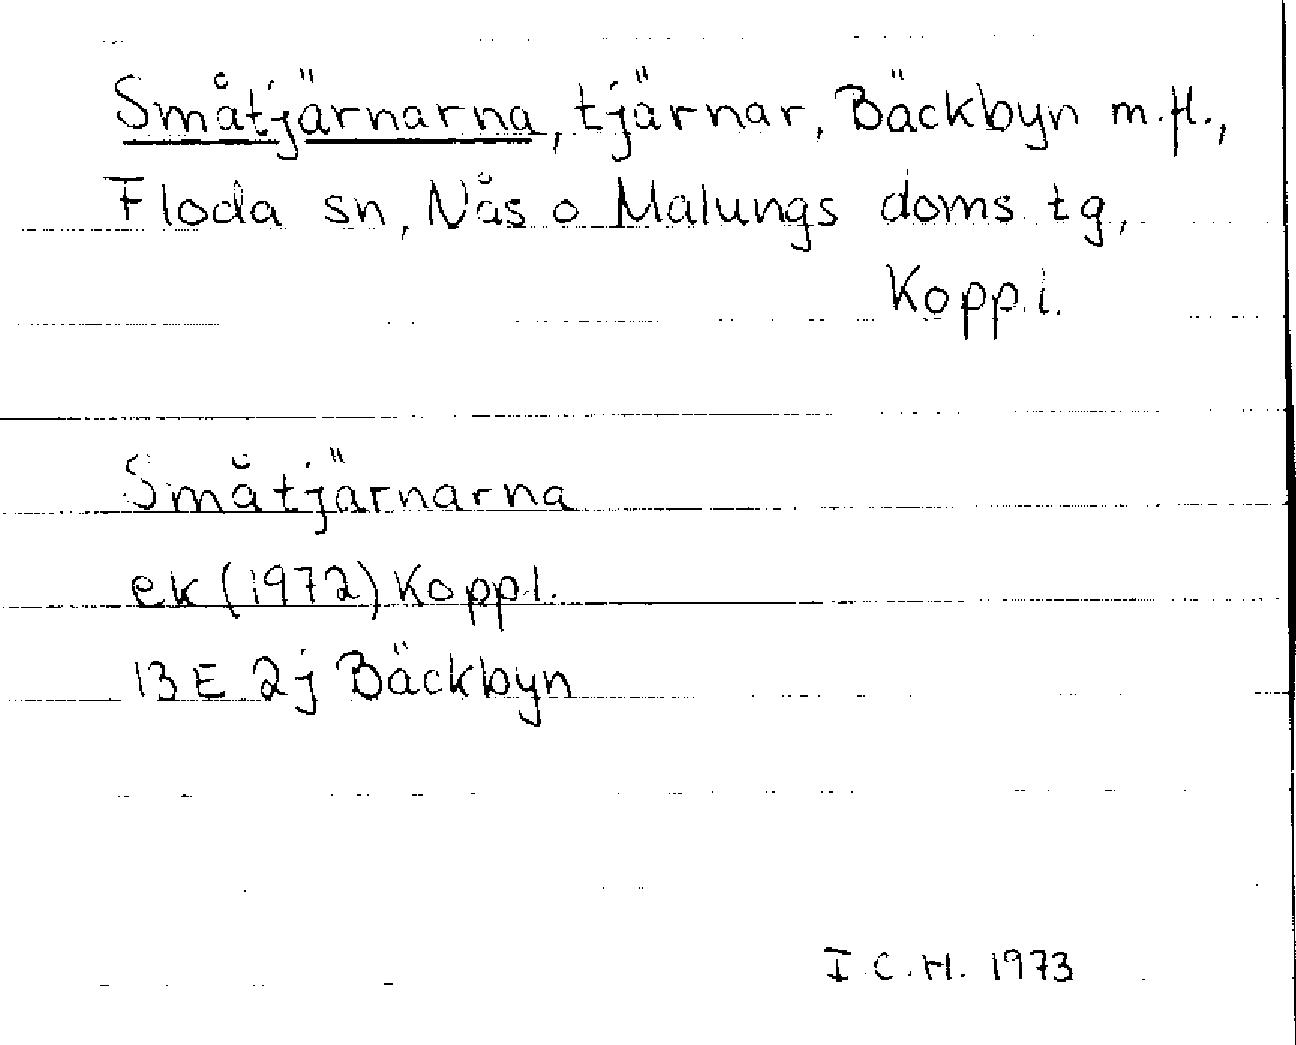 Småtjärnarna, tjärnar, Bäckbyn m.fl.,
Floda sn, Nås o Malungs doms tg,
Koppl.
Småtjärnarna
ek (1972) Koppl.
13 E 2j Bäckbyn
I.C.H. 1973